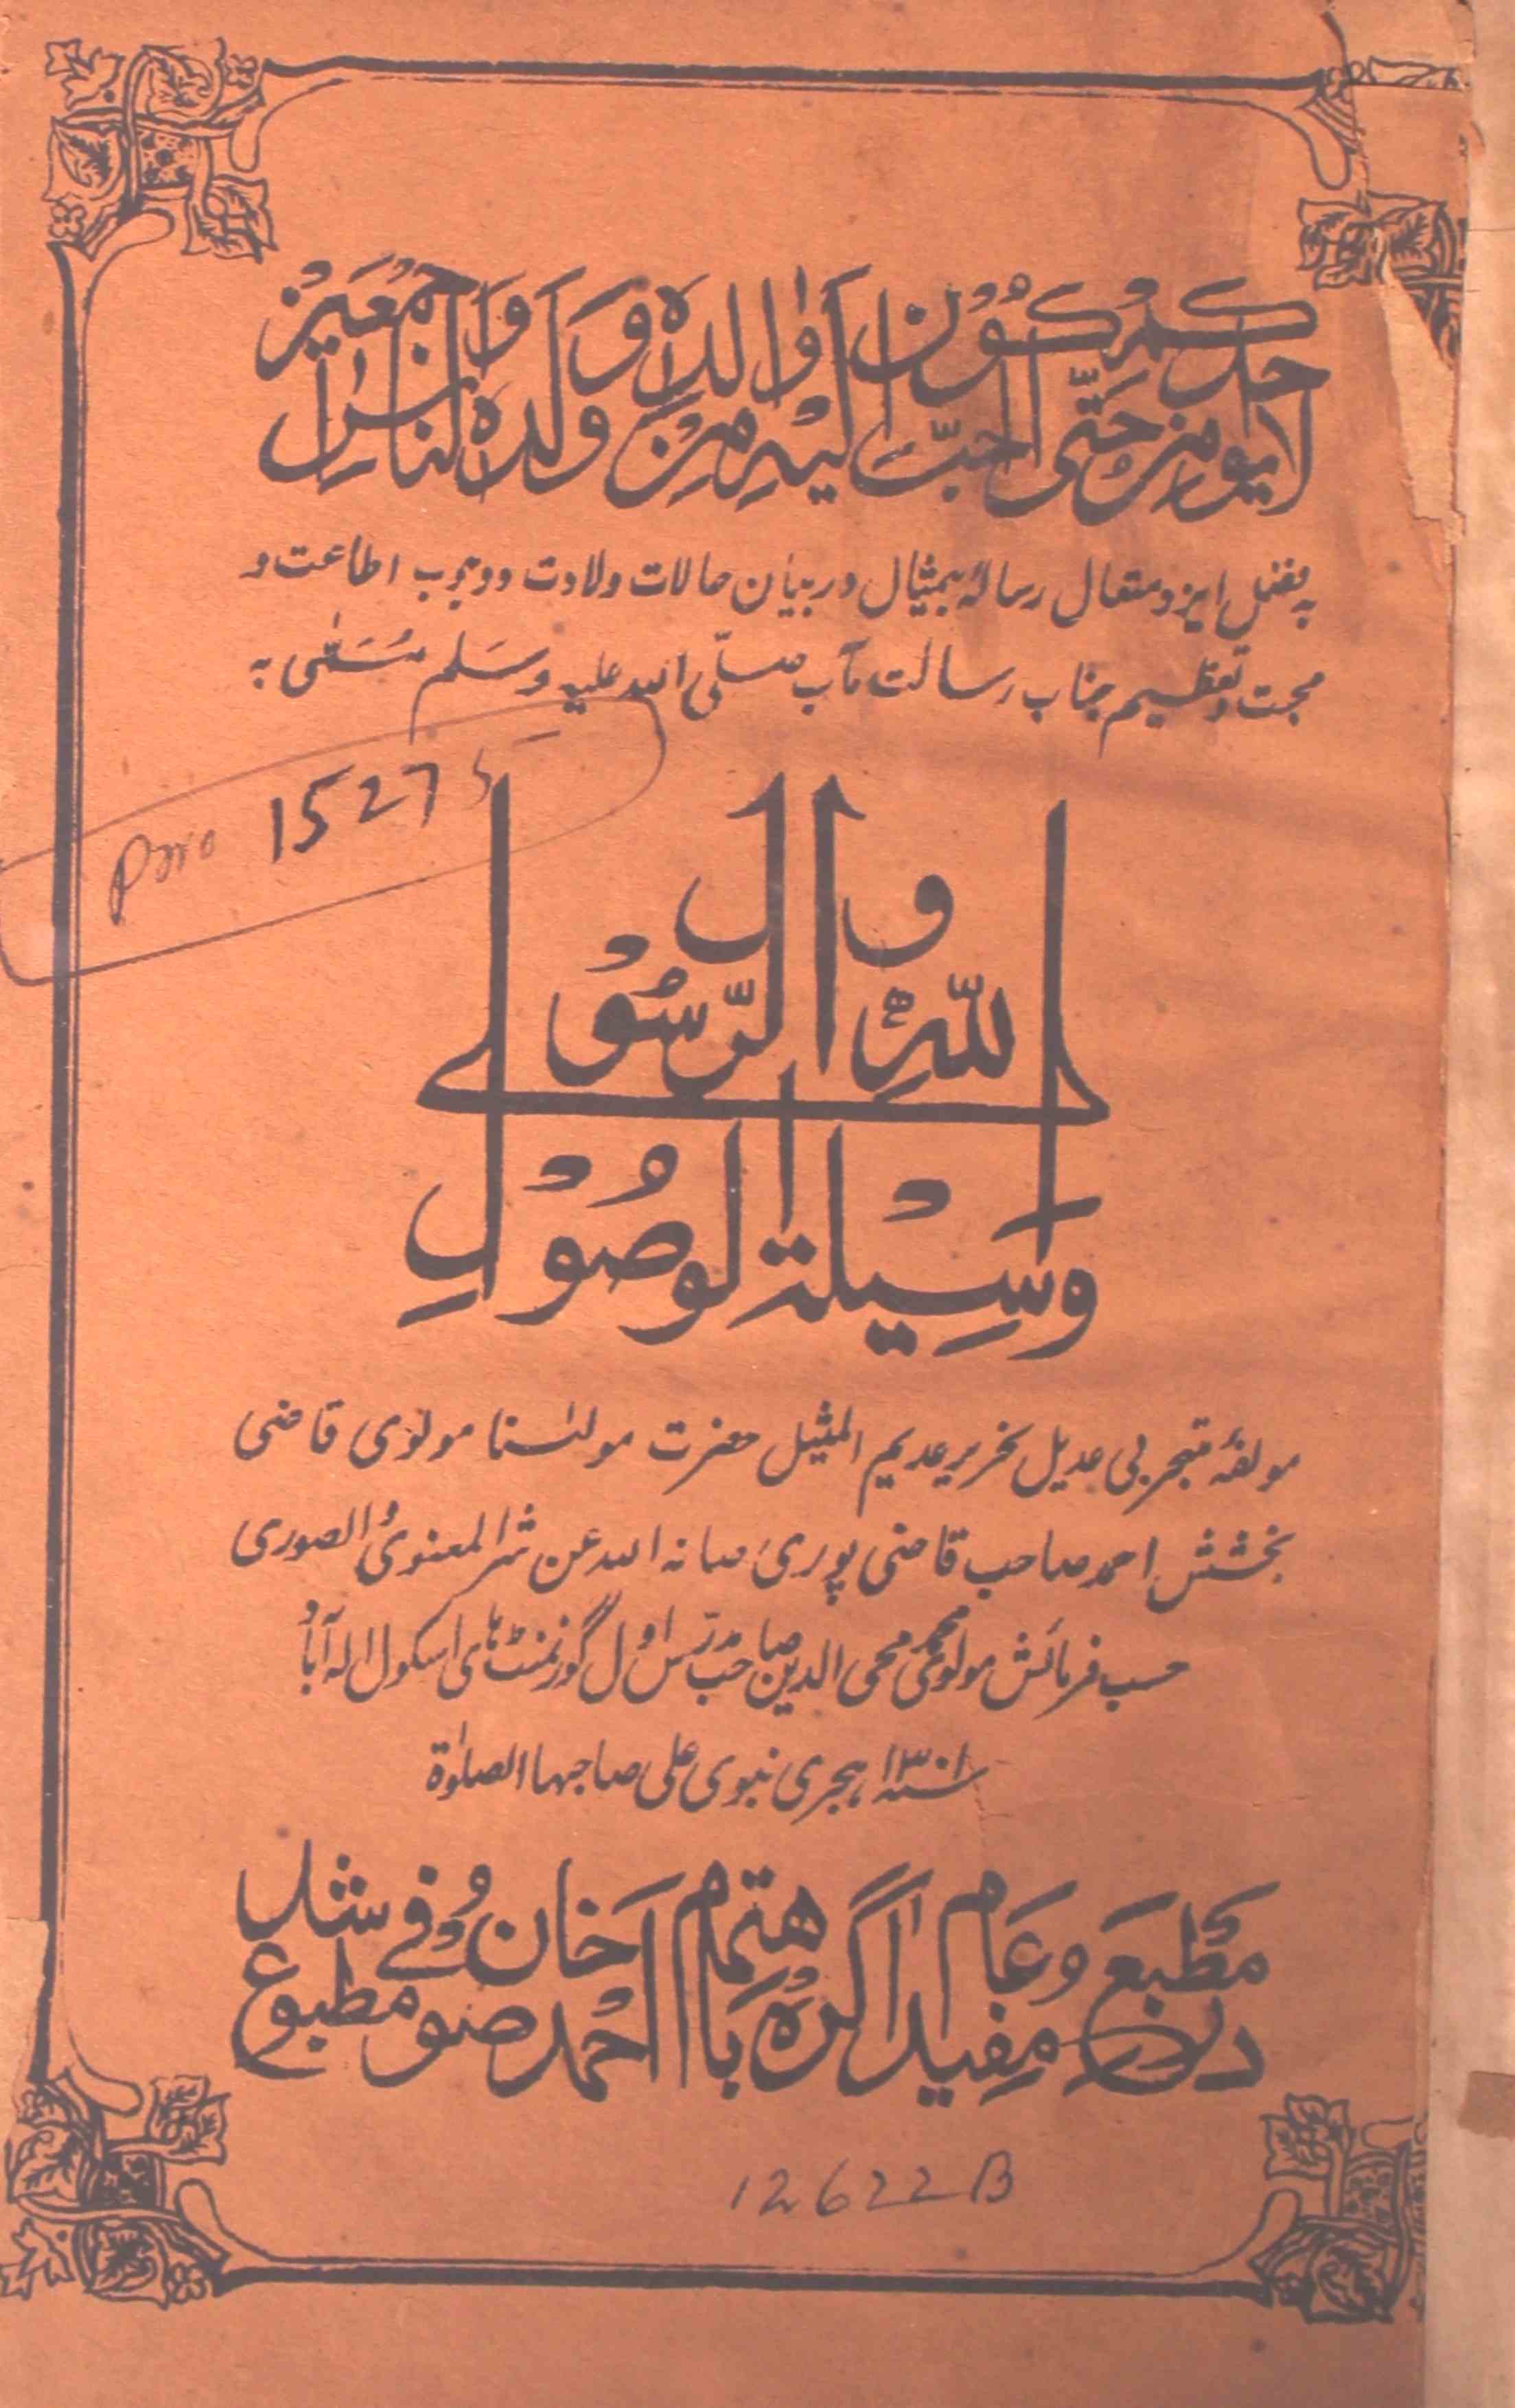 لا یؤمن احدکم حتی اکون احب الیه من والده وولده والناس اجمعین
بفضل ایزد متعال رسالہ بیمثال در بیان حالات ولادت و وجوب اطاعت و
محبت و تعظیم جناب رسالت مآب صلّی اللہ علیہ وسلم مُسَمّٰی بہ
وَسِیلة الوصُولِ الی اللهِ والرّسُول
Pero 15275
مولفۂ متبحر بی عدیل نحریر عدیم المثیل حضرت مولٰنا مولوی قاضی
بخشش احمد صاحب قاضی پوری صانہ اللہ عن شر المعنوی والصوری
حسب فرمائش مولوی محمد محی الدین صاحب مدرّس اول گورنمنٹ ہای اسکول الہ آباد
سنہ ۱۳۰۱ ہجری نبوی علی صاحبہا الصلٰوة
در مطبع مفید عام اگرہ باهتمام احمد خان صوفی مطبوع شد
12622B